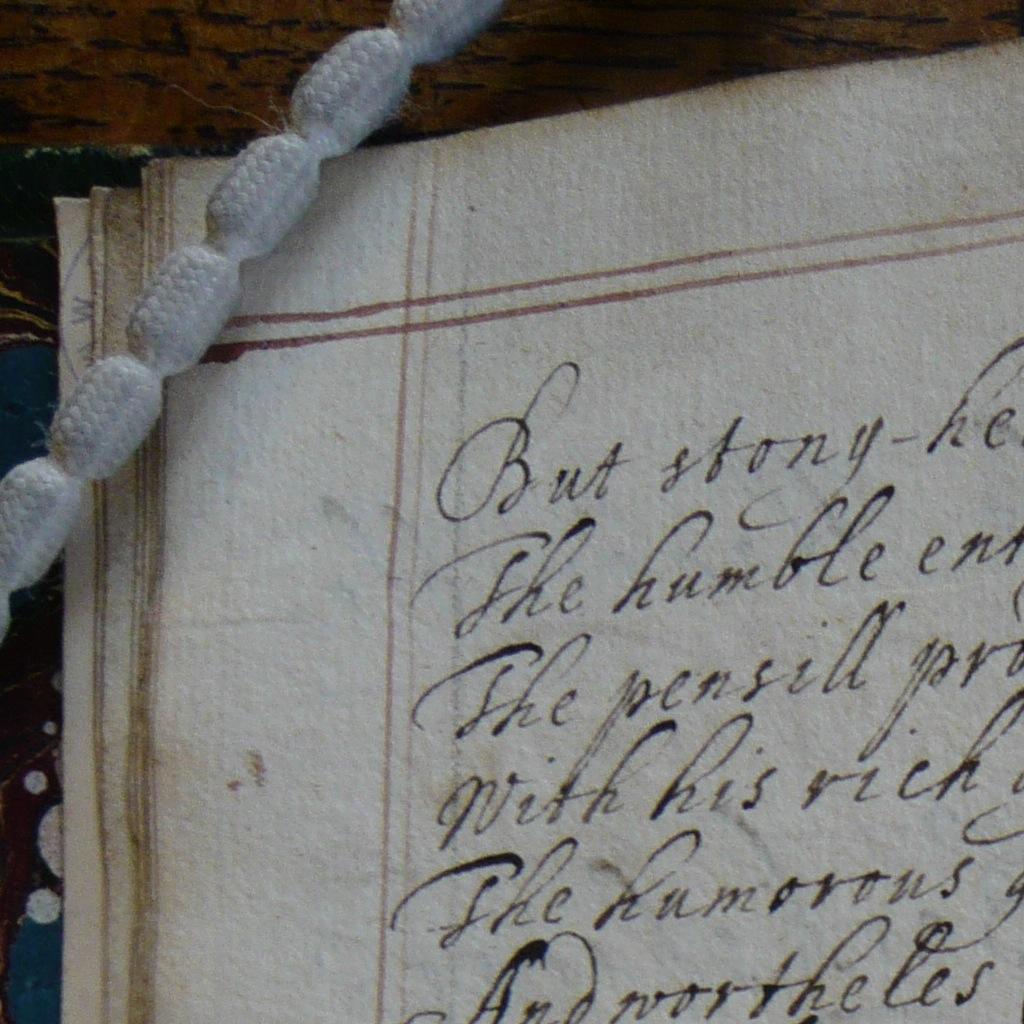 But stony-he
The humble ent
The pensill pro
With his rich g
The humorous g
And wortheles